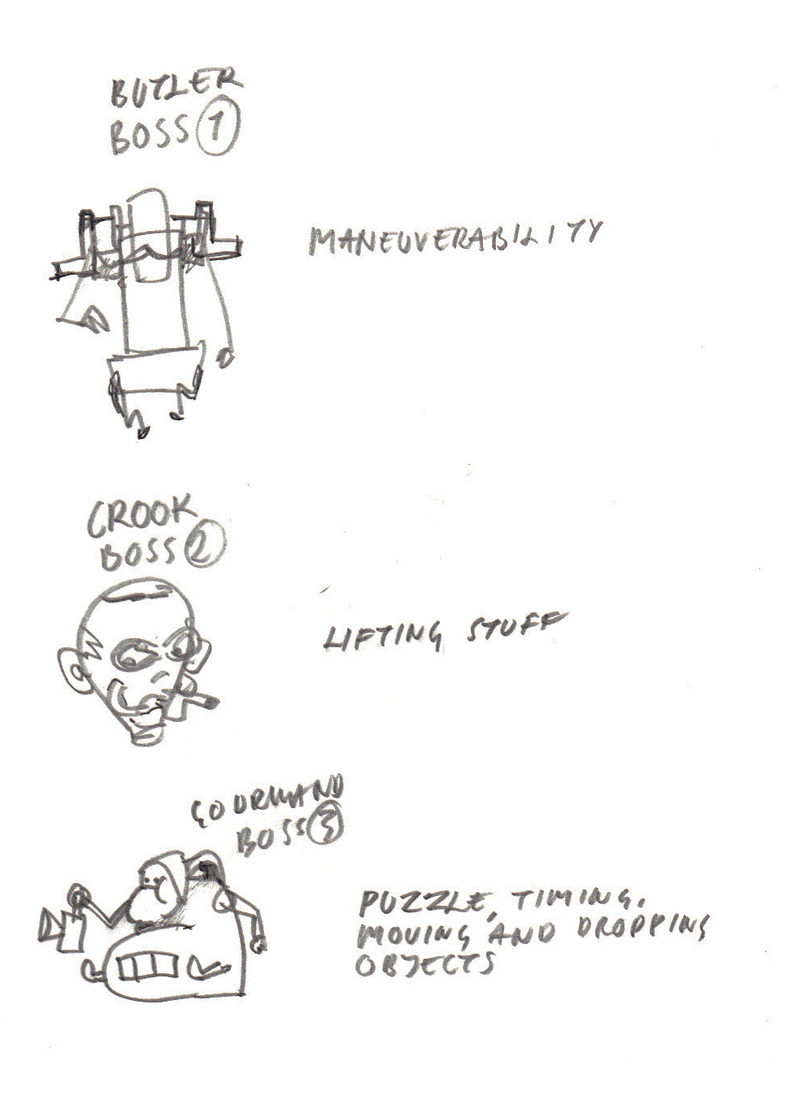 BUTLER
BOSS 1
MANEUVERABILITY
CROOK
BOSS 2
LIFTING STUFF
GOURMAND
BOSS 3
PUZZLE, TIMING,
MOVING AND DROPPING
OBJECTS